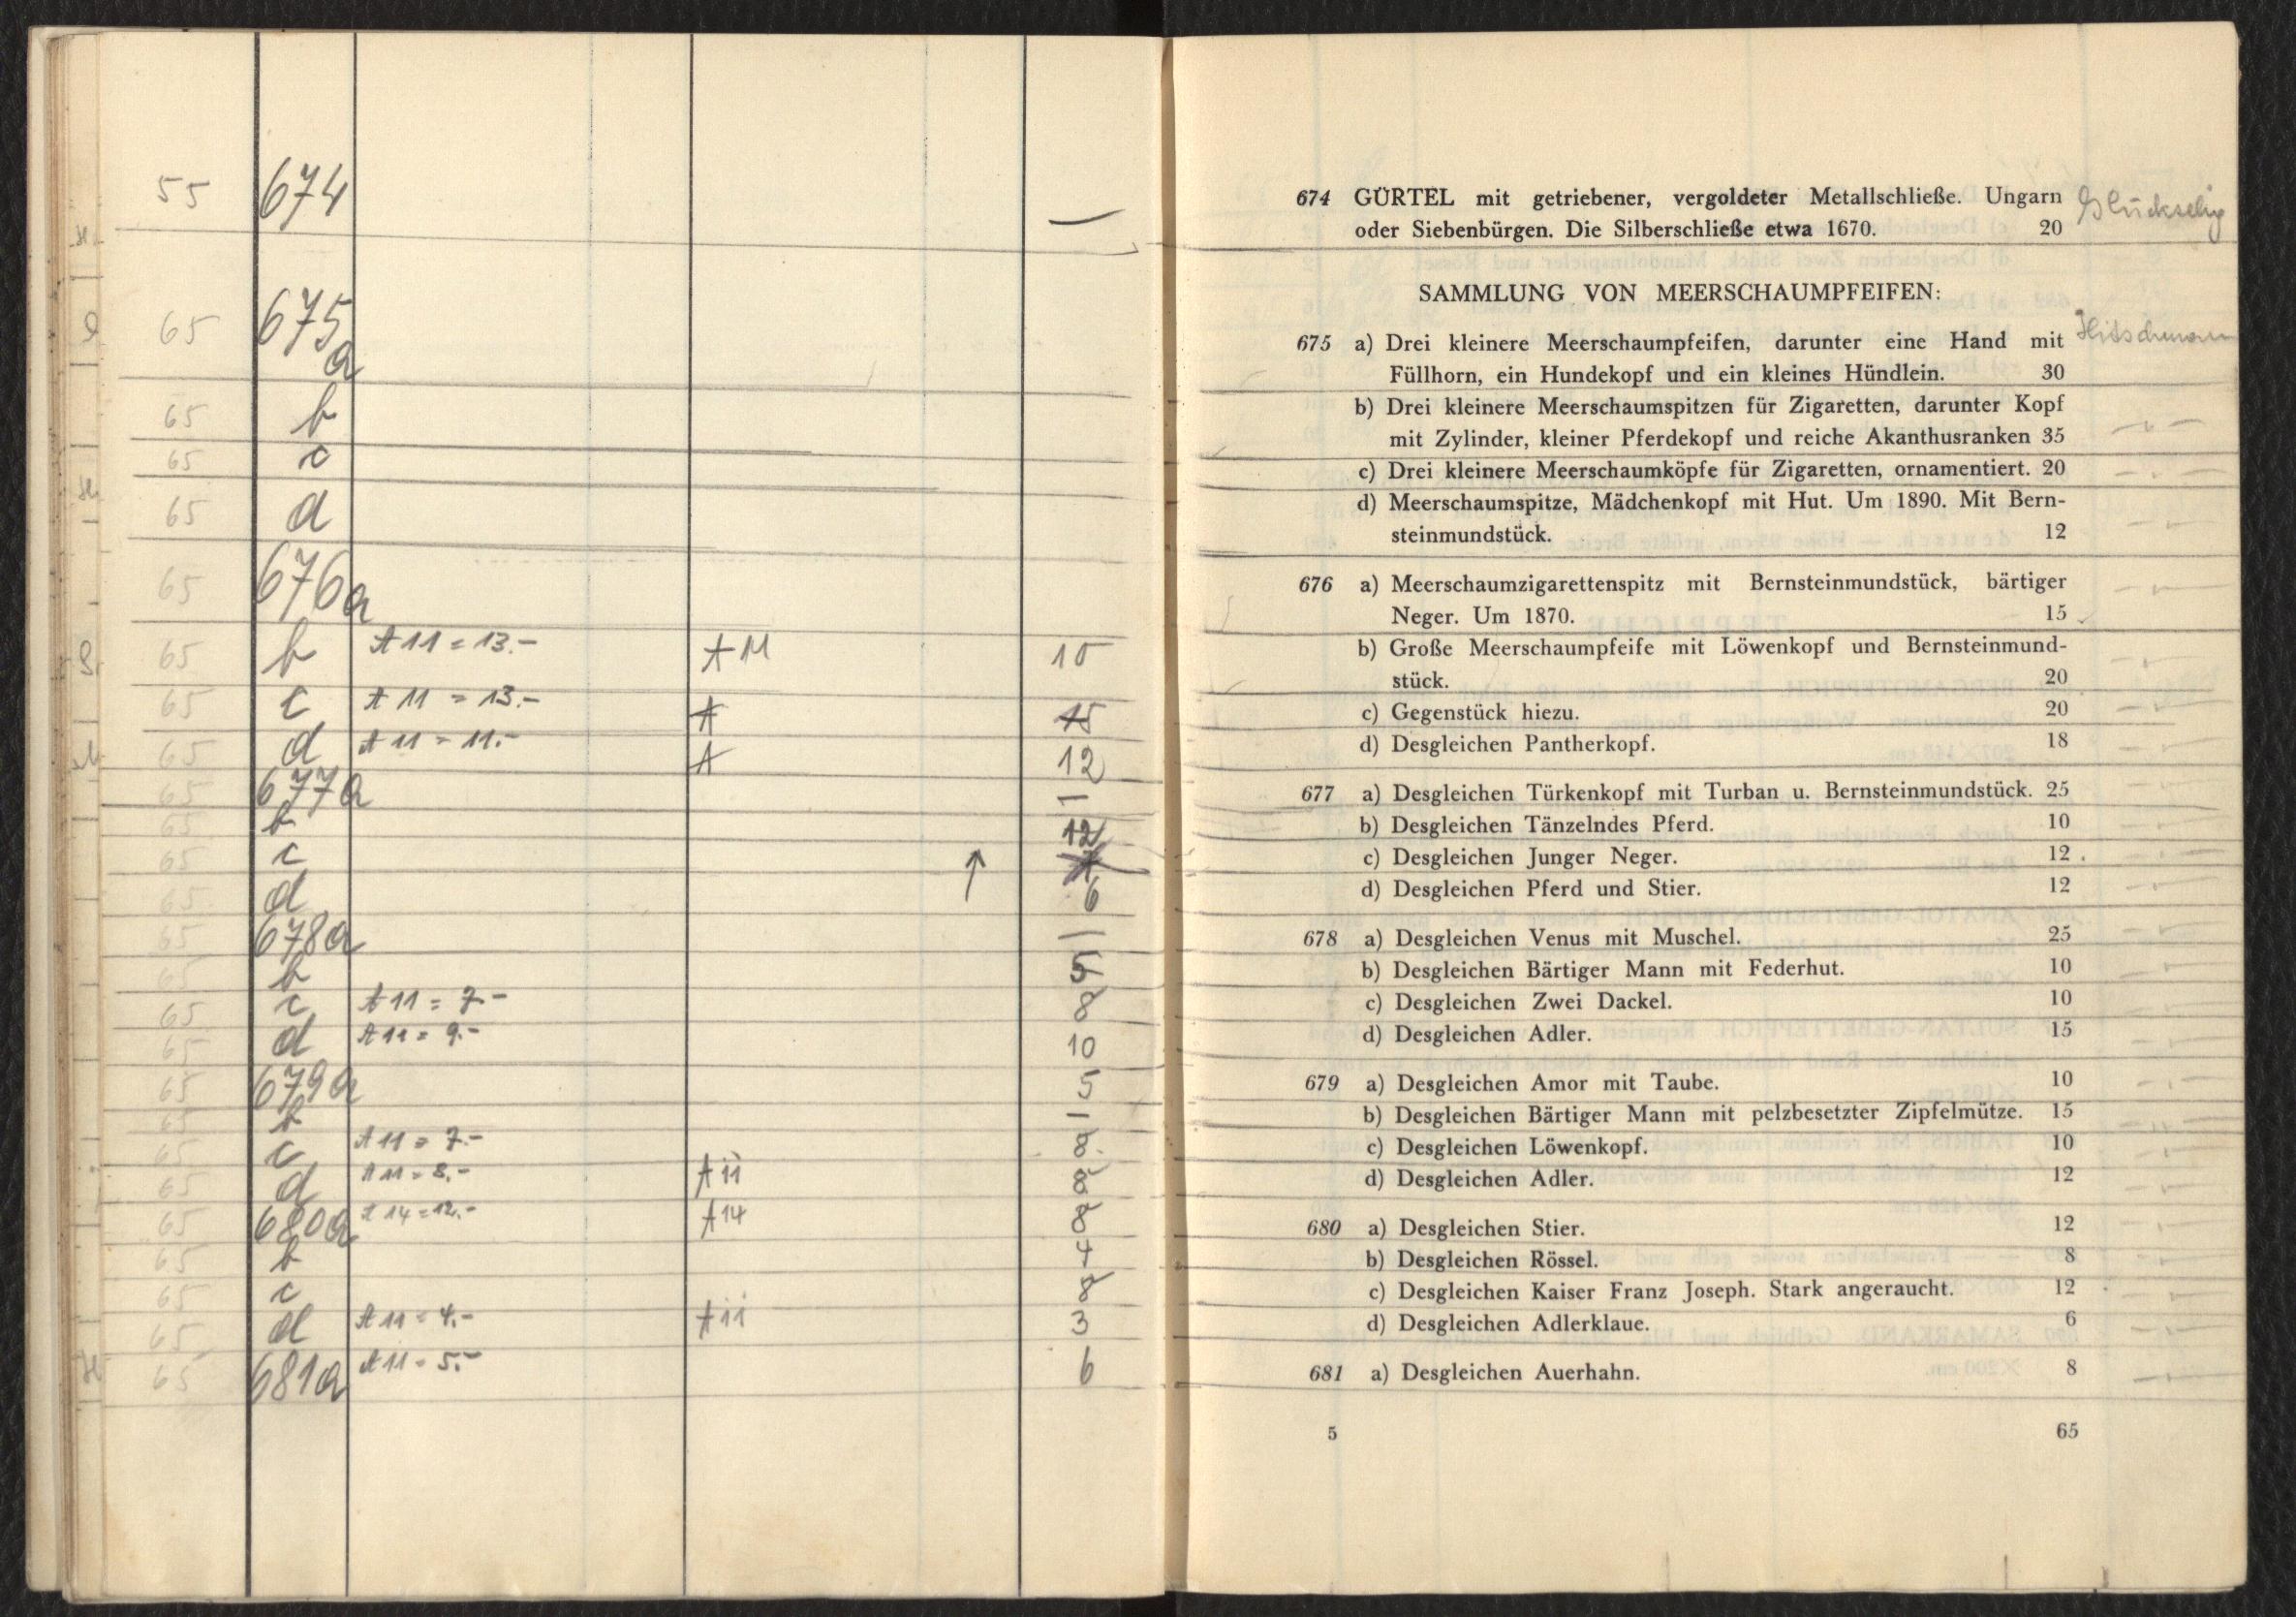 55 674 —
65 675 a
65 b
65 c
65 d
65 676a
65 b A 11 = 13.– A 11 10
65 c A 11 = 13.– A 15
65 d A 11 = 11.– A 12
65 677a —
65 b 12
65 c ↑
65 d 6
65 678a —
65 b 5
65 c A 11 = 7.– 8
65 d A 11 = 9.– 10
65 679a 5
65 b —
65 c A 11 = 7.– 8.
65 d A 11 = 8.– A 11 8
65 680a A 14 = 12.– A 14 8
65 b 4
65 c 8
65 d A 11 = 4.– A 11 3
65 681a A 11 = 5.– 6
674 GÜRTEL mit getriebener, vergoldeter Metallschließe. Ungarn Glückselig
oder Siebenbürgen. Die Silberschließe etwa 1670. 20
SAMMLUNG VON MEERSCHAUMPFEIFEN:
675 a) Drei kleinere Meerschaumpfeifen, darunter eine Hand mit Hitschmann
Füllhorn, ein Hundekopf und ein kleines Hündlein. 30
b) Drei kleinere Meerschaumspitzen für Zigaretten, darunter Kopf
mit Zylinder, kleiner Pferdekopf und reiche Akanthusranken 35
c) Drei kleinere Meerschaumköpfe für Zigaretten, ornamentiert. 20
d) Meerschaumspitze, Mädchenkopf mit Hut. Um 1890. Mit Bern-
steinmundstück. 12
676 a) Meerschaumzigarettenspitz mit Bernsteinmundstück, bärtiger
Neger. Um 1870. 15
b) Große Meerschaumpfeife mit Löwenkopf und Bernsteinmund-
stück. 20
c) Gegenstück hiezu. 20
d) Desgleichen Pantherkopf. 18
677 a) Desgleichen Türkenkopf mit Turban u. Bernsteinmundstück. 25
b) Desgleichen Tänzelndes Pferd. 10
c) Desgleichen Junger Neger. 12
d) Desgleichen Pferd und Stier. 12
678 a) Desgleichen Venus mit Muschel. 25
b) Desgleichen Bärtiger Mann mit Federhut. 10
c) Desgleichen Zwei Dackel. 10
d) Desgleichen Adler. 15
679 a) Desgleichen Amor mit Taube. 10
b) Desgleichen Bärtiger Mann mit pelzbesetzter Zipfelmütze. 15
c) Desgleichen Löwenkopf. 10
d) Desgleichen Adler. 12
680 a) Desgleichen Stier. 12
b) Desgleichen Rössel. 8
c) Desgleichen Kaiser Franz Joseph. Stark angeraucht. 12
d) Desgleichen Adlerklaue. 6
681 a) Desgleichen Auerhahn. 8
5 65